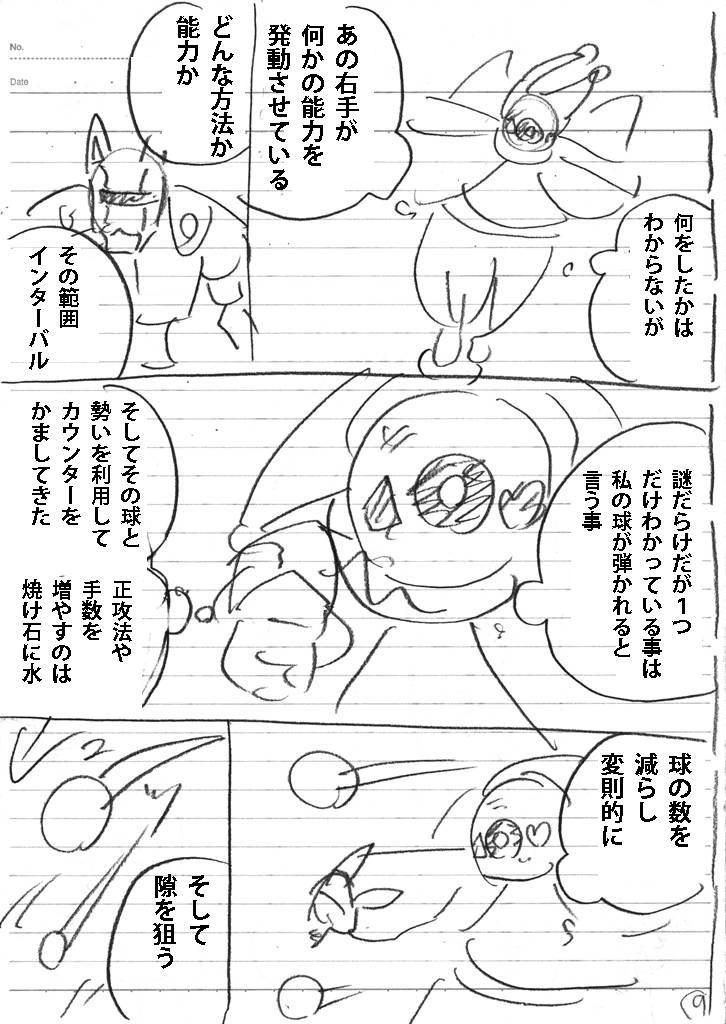 No.
Date
何をしたかは
わからないが
あの右手が
何かの能力を
発動させている
どんな方法か
能力か
その範囲
インターバル
謎だらけだが１つ
だけわかっている事は
私の球が弾かれると
言う事
そしてその球と
勢いを利用して
カウンターを
かましてきた
正攻法や
手数を
増やすのは
焼け石に水
球の数を
減らし
変則的に
そして
隙を狙う
9